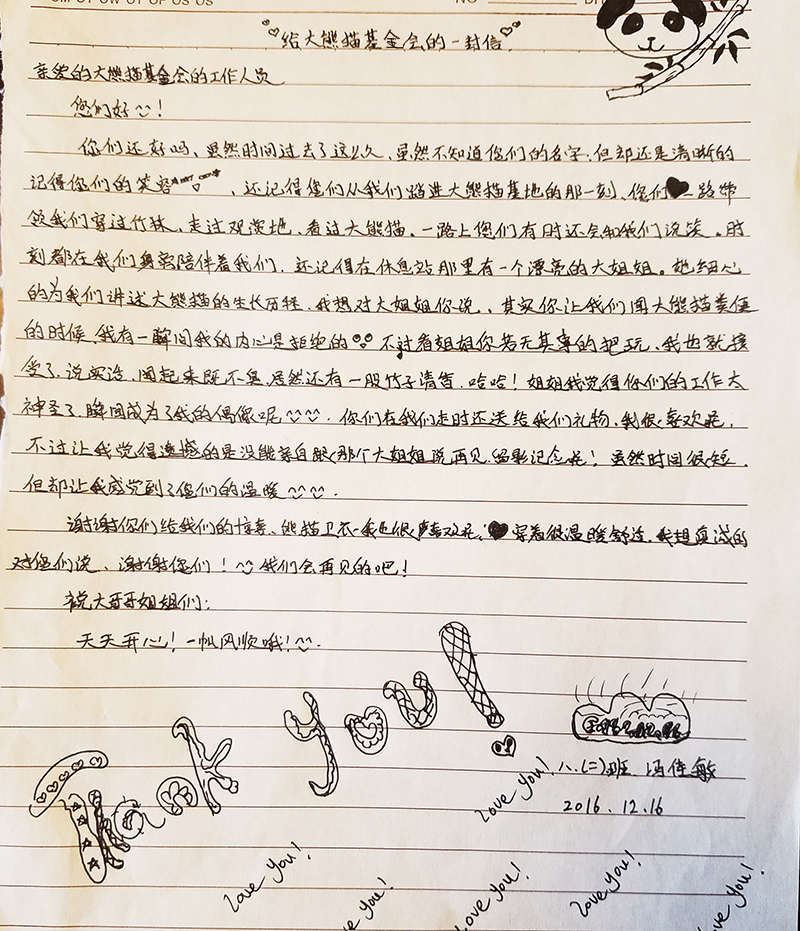 NO
给大熊猫基金会的一封信
亲爱的大熊猫基金会的工作人员
您们好！
你们还好吗、虽然时间过去了这么久、虽然不知道您们的名字.但却还是清晰的
记得您们的笑容、还记得您们从我们踏进大熊猫基地的那一刻、您们一路带
领我们穿过竹林、走过观赏地、看过大熊猫、一路上您们有时还会和我们说笑。时
刻都在我们身旁陪伴着我们、还记得在休息站那里有一个漂亮的大姐姐。她细心
的为我们讲述大熊猫的生长历程、我想对大姐姐你说、其实你让我们闻大熊猫粪便
的时候、我有一瞬间我的内心是拒绝的 不过看姐姐你若无其事的把玩、我也就接
受了.说实话、闻起来既不臭.居然还有一股竹子清香.哈哈！姐姐我觉得你们的工作太
神圣了.瞬间成为了我的偶像呢 你们在我们走时还送给我们礼物.我很喜欢呢、
不过让我觉得遗憾的是没能亲自跟那个大姐姐说再见.留影记念呢！虽然时间很短、
但却让我感觉到了您们的温暖.
谢谢你们给我们的惊喜、熊猫卫衣 我也很喜欢呢、穿着很温暖舒适.我想真诚的
对您们说、谢谢您们！我们会再见的吧！
祝大哥哥姐姐们：
天天开心！一帆风顺哦！
Thank you!
love you! 八.(二)班
2016.12.16
love you!
love you!
love you!
love you!
love you!